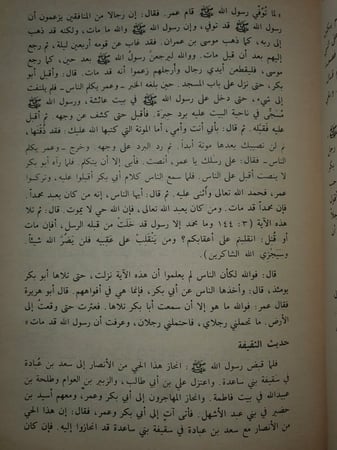 «لما تُوُفّي رسول الله ﷺ قام عمر. فقال: إن رجالا من المنافقين يزعمون أن
رسول الله ﷺ قد توفي، وإن رسول الله ﷺ والله ما مات، ولكنه قد ذهب
إلى ربه، كما ذهب موسى بن عمران. فقد غاب عن قومه أربعين ليلة، ثم رجع
إليهم بعد أن قيل مات. ووالله ليرجعنّ رسول الله ﷺ بعد حين، كما رجع
موسى، فليقطعن أيدي رجال وأرجلهم زعموا أنه قد مات. قال: وأقبل أبو
بكر، حتى نزل على باب المسجد. حين بلغه الخبر ــ وعمر يكلم الناس ــ فلم يلتفت
إلى شيء، حتى دخل على رسول الله ﷺ في بيت عائشة، ورسول الله ﷺ
مُسَجّى في ناحية البيت عليه برد حبرة. فأقبل حتى كشف عن وجهه. ثم أقبل
عليه فقبّله. ثم قال: بأبي أنت وأمي، أما الموتة التي كتبها الله عليك. فقد ذُقتَها،
ثم لن تصيبك بعدها موتة أبداً. ثم رد البرد على وجهه. وخرج ــ وعمر يكلم
الناس ــ فقال: على رسلك يا عمر، أنصت. فأبى إلا أن يتكلم. فلما رآه أبو بكر
لا ينصت أقبل على الناس. فلما سمع الناس كلام أبي بكر أقبلوا عليه، وتركوا
عمر، فحمد الله تعالى وأثنى عليه. ثم قال: أيها الناس، إنه من كان يعبد محمداً.
فإن محمداً قد مات. ومن كان يعبد الله تعالى، فإن الله حي لا يموت. قال: ثم تلا
هذه الآية (٣: ١٤٤ وما محمد إلا رسول قد خلَتْ من قبله الرسل. أفإن مات
أو قُتل: انقلبتم على أعقابكم؟ ومن ينقلبْ على عقبيه فلن يضرَّ الله شيئاً
وسيجزي الله الشاكرين).
قال: فوالله لكأن الناس لم يعلموا أن هذه الآية نزلت، حتى تلاها أبو بكر
يومئذ، قال: وأخذها الناس عن أبي بكر، فإنما هي في أفواههم. قال أبو هريرة
فقال عمر: فوالله ما هو إلا أن سمعت أبا بكر تلاها. فعثرت حتى وقعتُ إلى
الأرض. ما تحملني رجلاي، فاحتملني رجلان، وعرفت أن رسول الله قد مات»
حديث السقيفة
فلما قبض رسول الله ﷺ: انحاز هذا الحي من الأنصار إلى سعد بن عُبادة
في سقيفة بني ساعدة. واعتزل علي بن أبي طالب، والزبير بن العوام وطلحة بن
عبيدالله في بيت فاطمة. وانحاز المهاجرون إلى أبي بكر وعمر، ومعهم أسيد بن
حضير في بني عبد الأشهل. فأتى آتٍ إلى أبي بكر وعمر، فقال: إن هذا الحي
من الأنصار مع سعد بن عبادة في سقيفة بني ساعدة قد انحازوا إليه. فإن كان